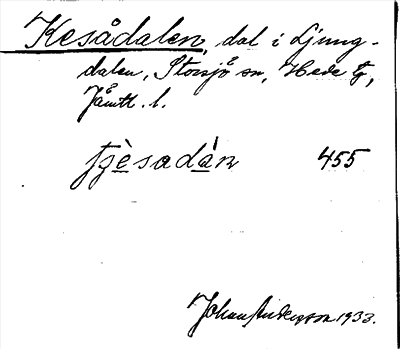 Kesådalen, dal i Ljung-
dalen, Storsjö sn, Hede tg,
Jämtl. l.
tjèsadán 455
Johan Andersson 1933.